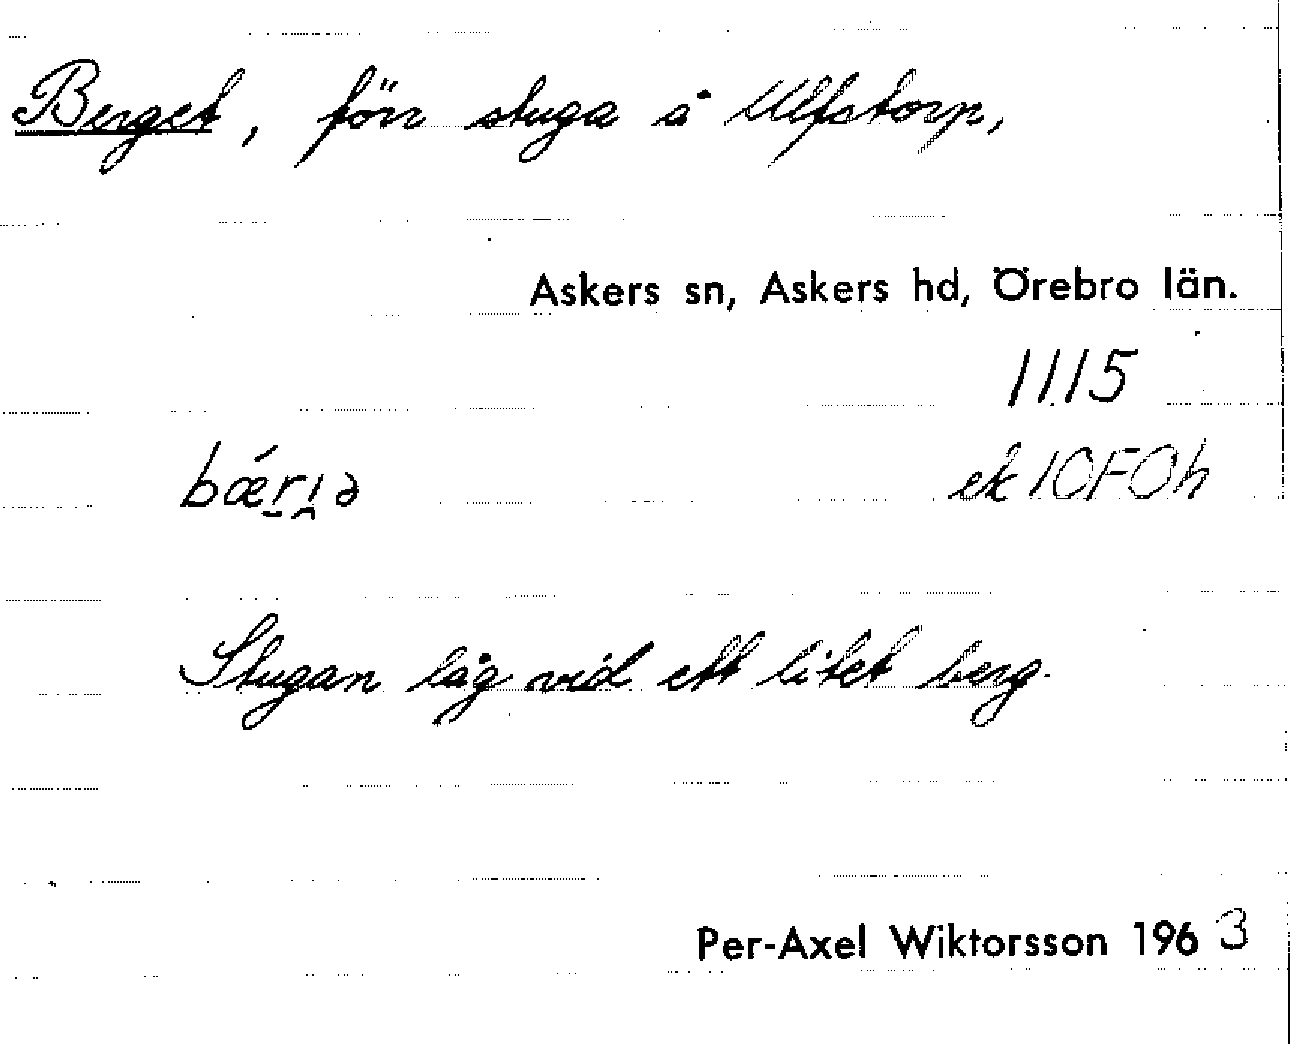 Berget, förr stuga å Ulfstorp,
Askers sn, Askers hd, Örebro län.
1115
bǽrı̯ə
ek 10F0h
Stugan låg vid ett litet berg.
Per-Axel Wiktorsson 1963